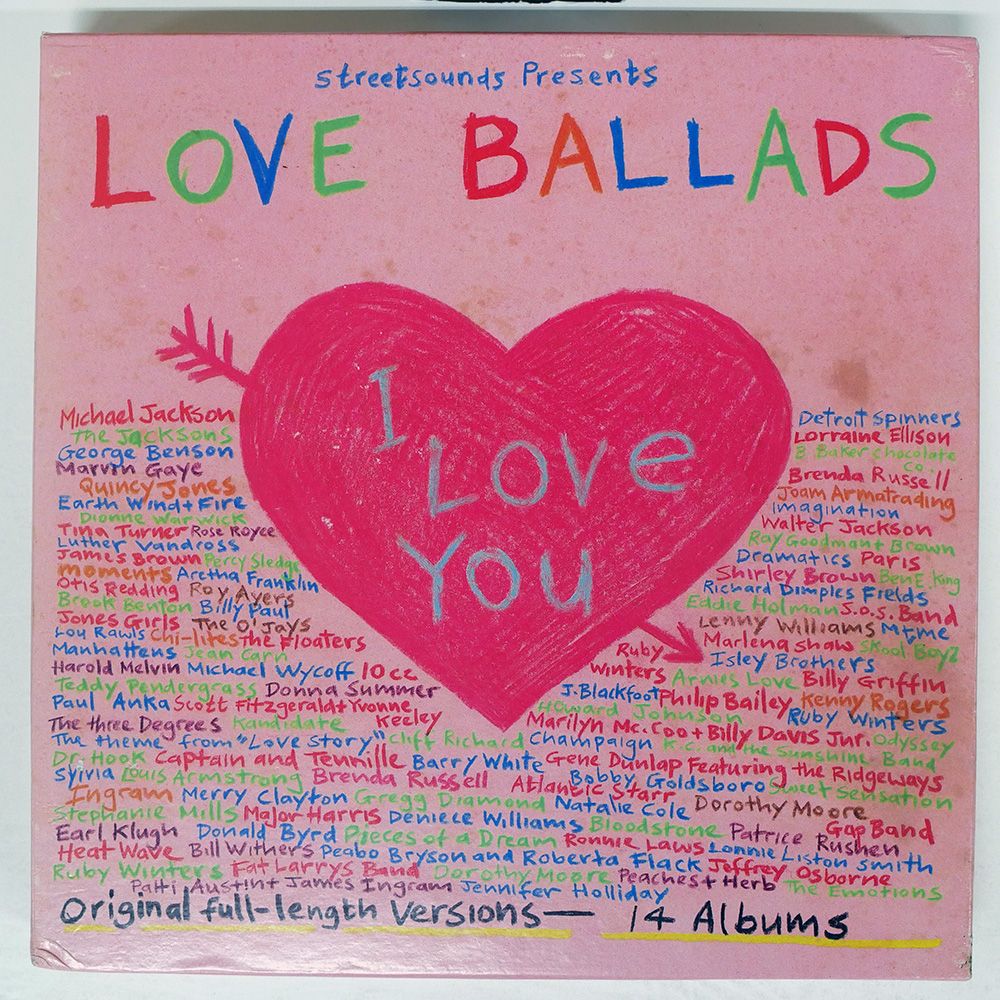 streetsounds Presents
LOVE BALLADS
I
LOVe
YOU
Michael Jackson
The Jacksons
George Benson
Marvin Gaye
Quincy Jones
Earth Wind + Fire
Dionne Warwick
Tina Turner Rose Royce
Luther Vandross
James Brown Percy Sledge
moments Aretha Franklin
Otis Redding Roy Ayers
Brook Benton Billy Paul
Jones Girls The O'Jays
Lou Rawls Chi-lites The Floaters
Manhattens Jean Carn
Harold Melvin Michael Wycoff 10cc
Teddy Pendergrass Donna Summer
Paul Anka Scott Fitzgerald + Yvonne
Keeley
The three Degrees Kandidate
The theme from "Love Story" Cliff Richard
Dr Hook Captain and Tennille Barry White
Sylvia Louis Armstrong Brenda Russell
Ingram Merry Clayton Gregg Diamond
Stephanie Mills Major Harris Deniece Williams
Earl Klugh Donald Byrd Pieces of a Dream
Heat Wave Bill Withers Peabo Bryson and Roberta Flack
Ruby Winters Fat Larrys Band Dorothy Moore
Patti Austin + James Ingram Jennifer Holliday
Detroit Spinners
Lorraine Ellison
B Baker chocolate
Co
Brenda Russell
Joam Armatrading
imagination
Walter Jackson
Ray Goodman + Brown
Dramatics Paris
Shirley Brown Ben E. King
Richard Dimples Fields
Eddie Holman J.o.s. Band
Lenny Williams Mtme
Marlena Shaw Skool Boyz
Ruby
Winters
Isley Brothers
Arnies Love Billy Griffin
J. Blackfoot Philip Bailey Kenny Rogers
Howard Johnson Ruby Winters
Marilyn Mc. Coo + Billy Davis Jnr. Odyssey
Champaign K.C. and the Sunshine Band
Gene Dunlap Featuring the Ridgeways
Atlantic Starr Bobby Goldsboro Sweet Sensation
Natalie Cole Dorothy Moore
Bloodstone Patrice Rushen Gap Band
Ronnie Laws Lonnie Liston Smith
Jeffrey Osborne
Peaches + Herb The Emotions
Original full-length Versions — 14 Albums